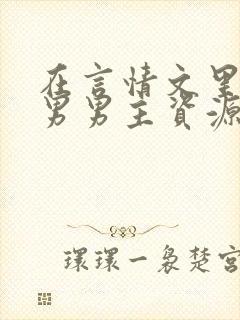 在言情文里
男男主資源
環環一裊楚宮